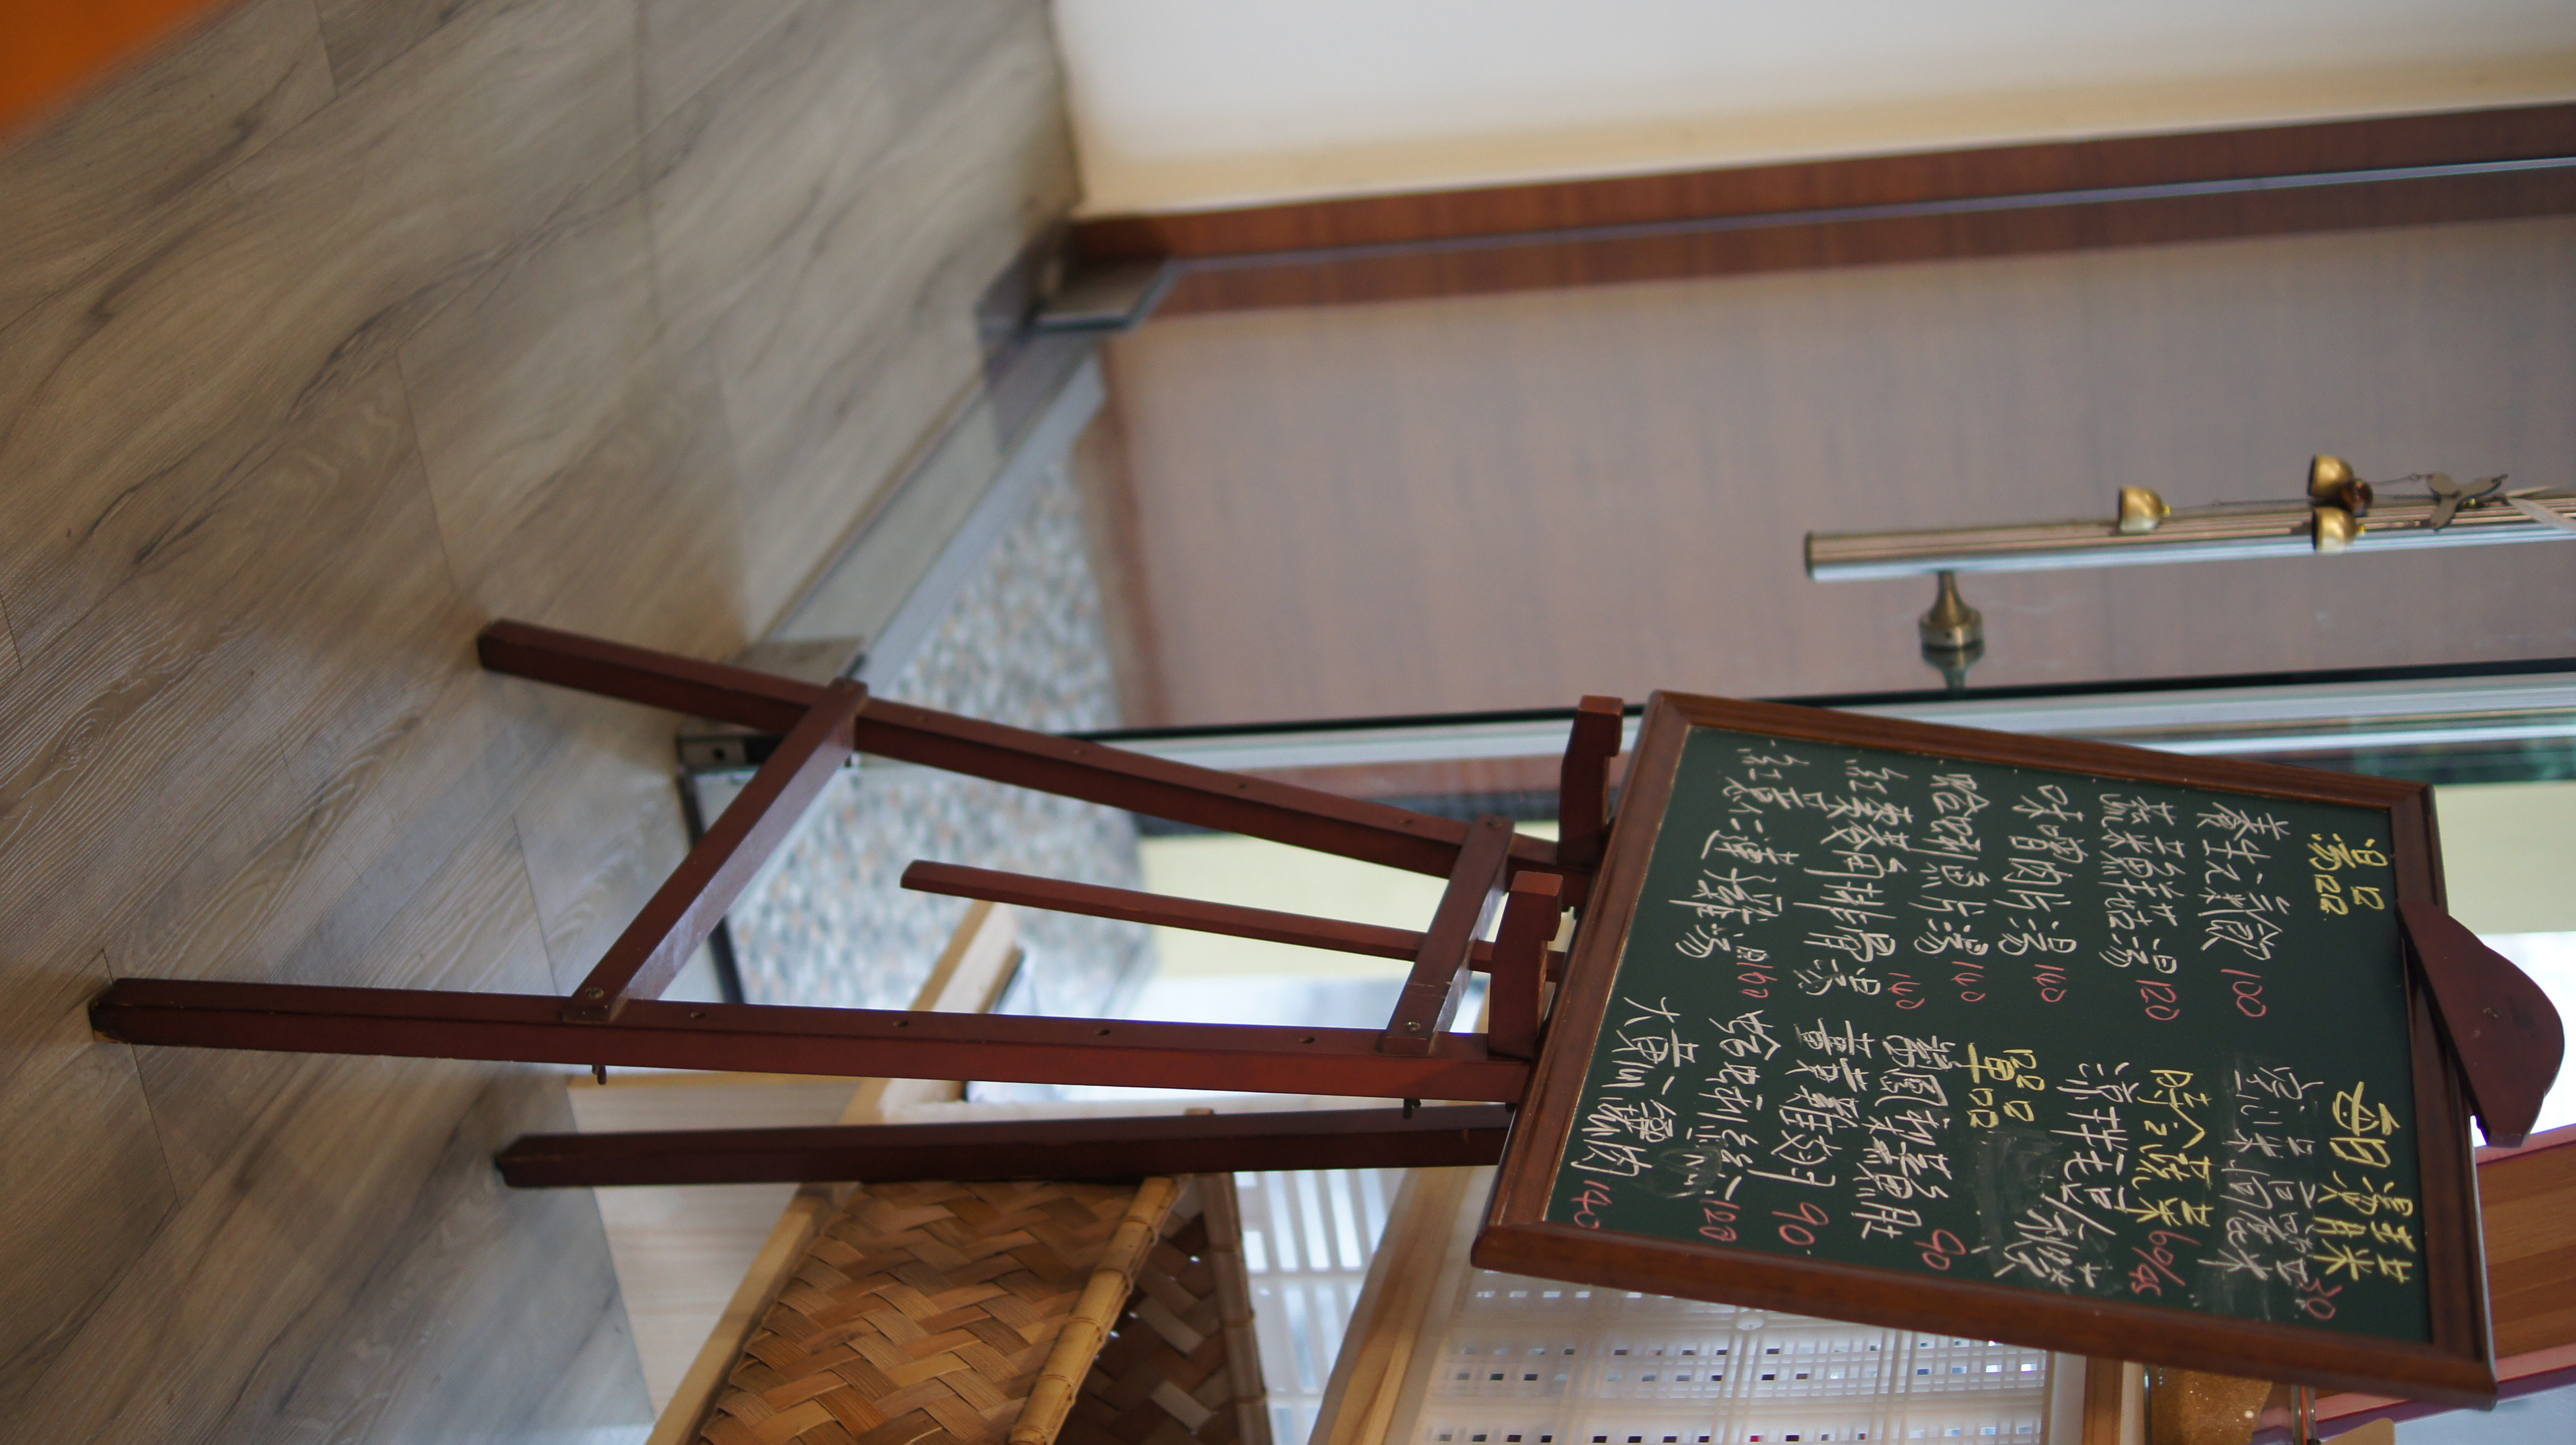 湯品
養生元氣飲 100
蔬菜鮮菇湯 120
味噌肉片湯 140
蛤蜊魚片湯 140
紅棗菱角排骨湯 140
紅薏仁蓮子雞湯 160
每日燙青菜 30
空心菜.高麗菜
時令蔬菜 60/45
涼拌毛豆/秋葵
單品
鳳梨蒸魚肚 90
薑黃雞翅 90
蛤蜊絲瓜 120
大黃瓜鑲肉 140